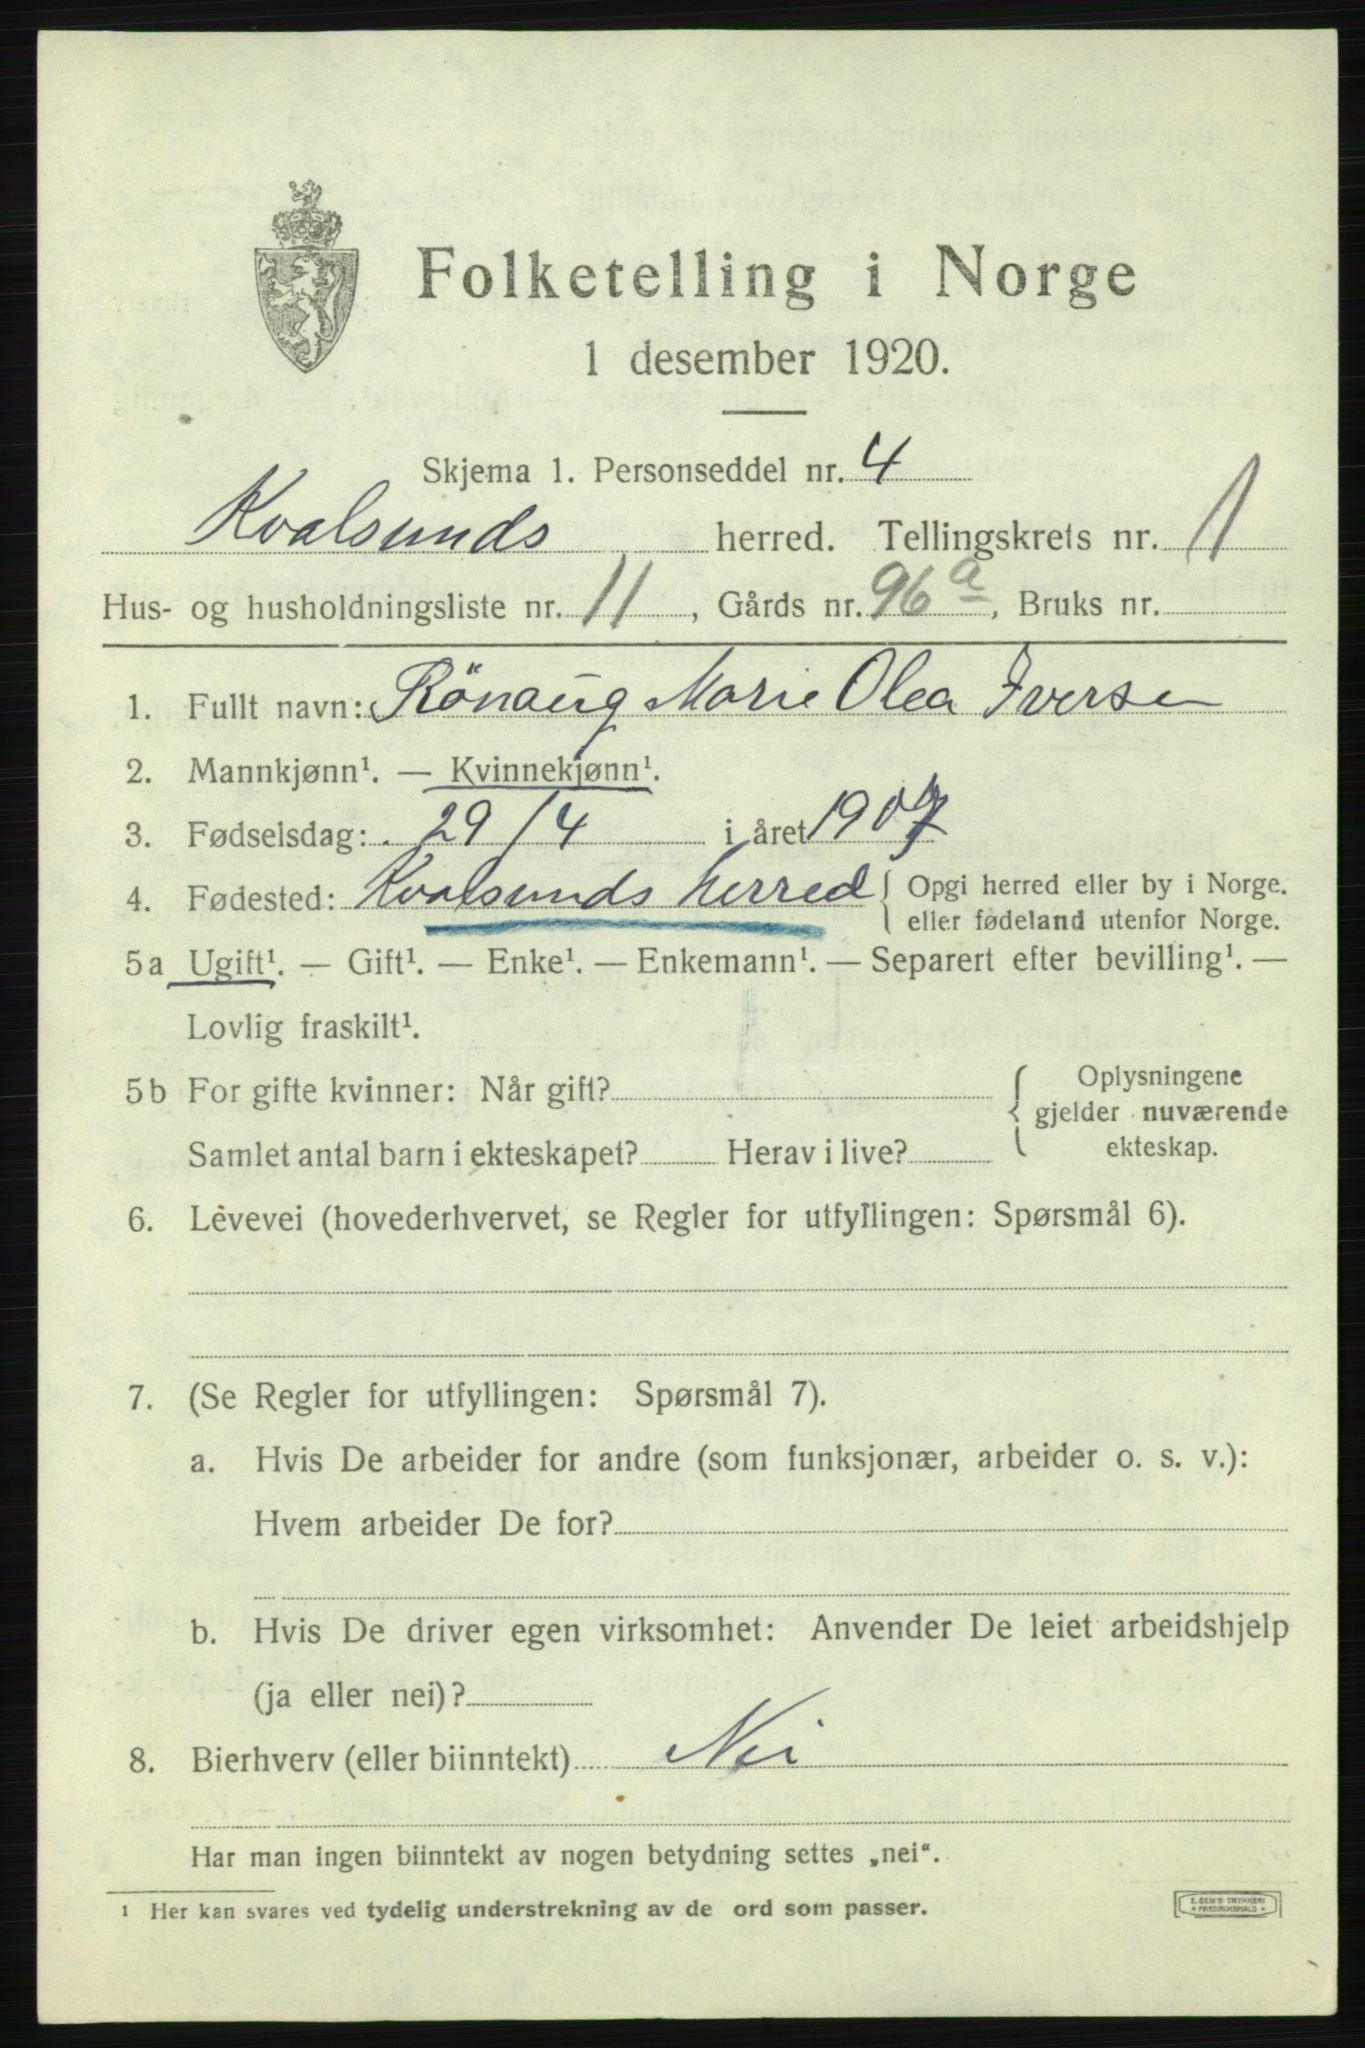 Folketelling i Norge
1 desember 1920.
Skjema 1. Personseddel nr. 4
Kvalsunds herred. Tellingskrets nr. 1
Hus- og husholdningsliste nr. 11, Gårds nr. 96 a, Bruks nr.
1. Fullt navn: Rönaug Marie Olea Iversen
2. Mannkjønn¹. — Kvinnekjønn¹.
3. Fødselsdag: 29/4 i året 1907
4. Fødested: Kvalsunds herred { Opgi herred eller by i Norge.
eller fødeland utenfor Norge.
5a Ugift¹. — Gift¹. — Enke¹. — Enkemann¹. — Separert efter bevilling¹. —
Lovlig fraskilt¹.
5b For gifte kvinner: Når gift? { Oplysningene
gjelder nuværende
ekteskap.
Samlet antal barn i ekteskapet? Herav i live?
6. Levevei (hovederhvervet, se Regler for utfyllingen: Spørsmål 6).
7. (Se Regler for utfyllingen: Spørsmål 7).
a. Hvis De arbeider for andre (som funksjonær, arbeider o. s. v.):
Hvem arbeider De for?
b. Hvis De driver egen virksomhet: Anvender De leiet arbeidshjelp
(ja eller nei)?
8. Bierhverv (eller biinntekt) Nei
Har man ingen biinntekt av nogen betydning settes „nei“.
¹ Her kan svares ved tydelig understrekning av de ord som passer.
E. SEM'S TRYKKERI
* FREDRIKSHALD *